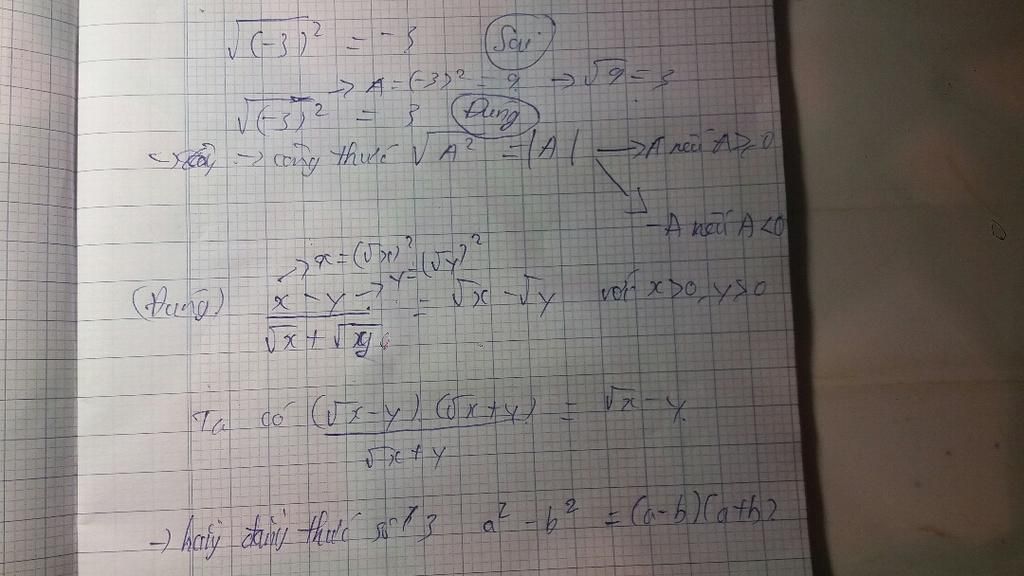 √(-3)² = -3 Sai
→ A = (-3)² = 9 → √9 = 3
√(-3)² = 3 Đúng
→ công thức √A² = |A| → A nếu A ≥ 0
-A nếu A < 0
→ x = (√x)² → y = (√y)²
(Đúng) (x - y) / (√x + √y) = √x - √y với x > 0, y > 0
Ta có (√x - y) (√x + y) / (√x + y) = √x - y
→ hằng đẳng thức số 3 a² - b² = (a - b)(a + b)